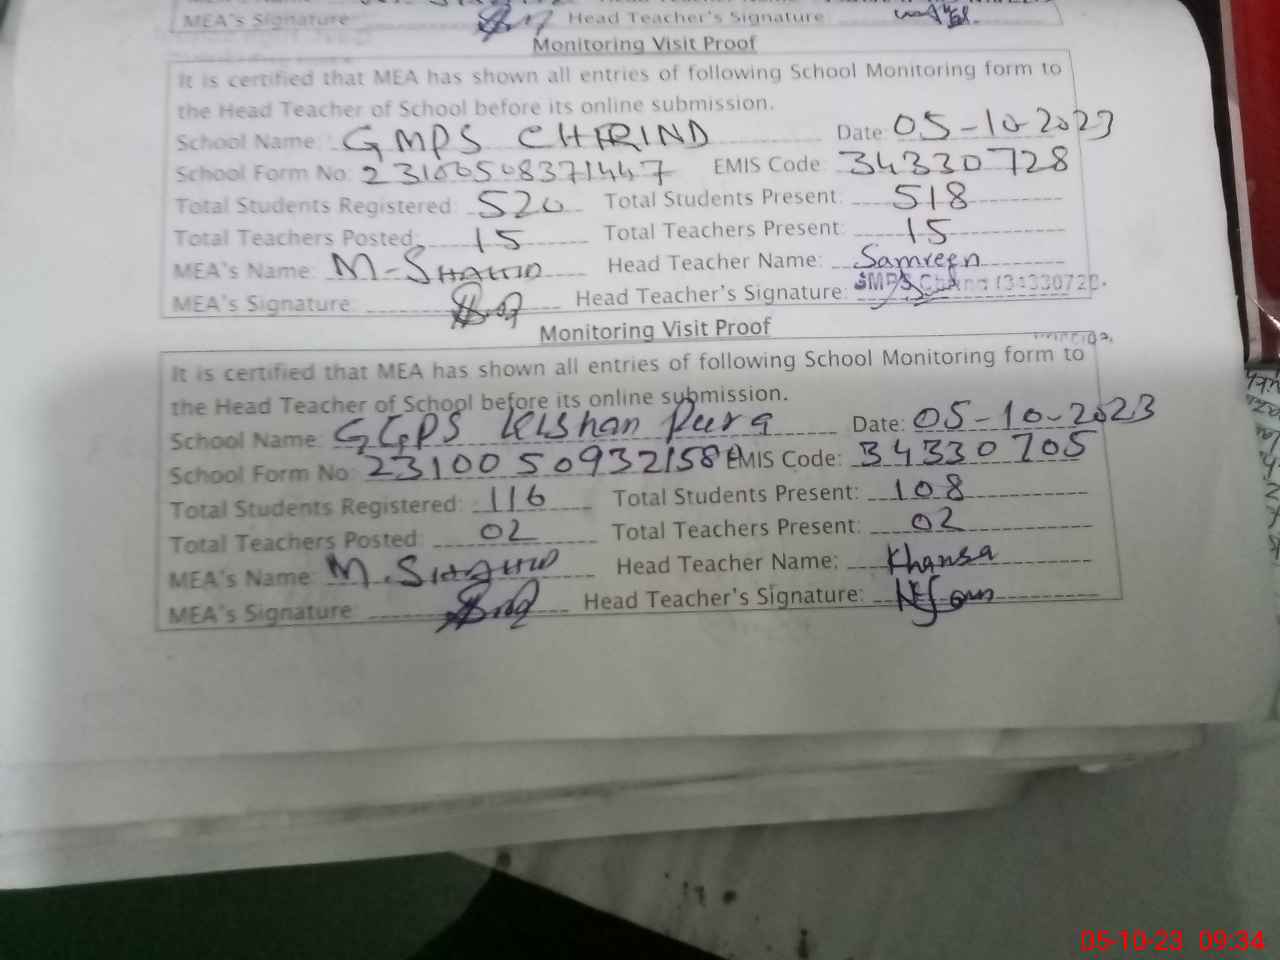 MEA's Signature Head Teacher's Signature
Monitoring Visit Proof
It is certified that MEA has shown all entries of following School Monitoring form to
the Head Teacher of School before its online submission.
School Name: GMPS CHIRIND Date: 05-10-2023
School Form No: 23100508371447 EMIS Code: 34330728
Total Students Registered: 520 Total Students Present: 518
Total Teachers Posted: 15 Total Teachers Present: 15
MEA's Name: M-SHAHID Head Teacher Name: Samreen
MEA's Signature: Head Teacher's Signature:
Monitoring Visit Proof
It is certified that MEA has shown all entries of following School Monitoring form to
the Head Teacher of School before its online submission.
School Name: GGPS Kishan Pura Date: 05-10-2023
School Form No: EMIS Code: 34330705
Total Students Registered: 116 Total Students Present: 108
Total Teachers Posted: 02 Total Teachers Present: 02
MEA's Name: M.SHAHID Head Teacher Name: Khansa
MEA's Signature: Head Teacher's Signature:
05-10-23 09:34